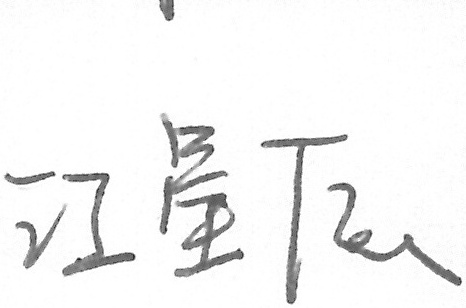 江星辰